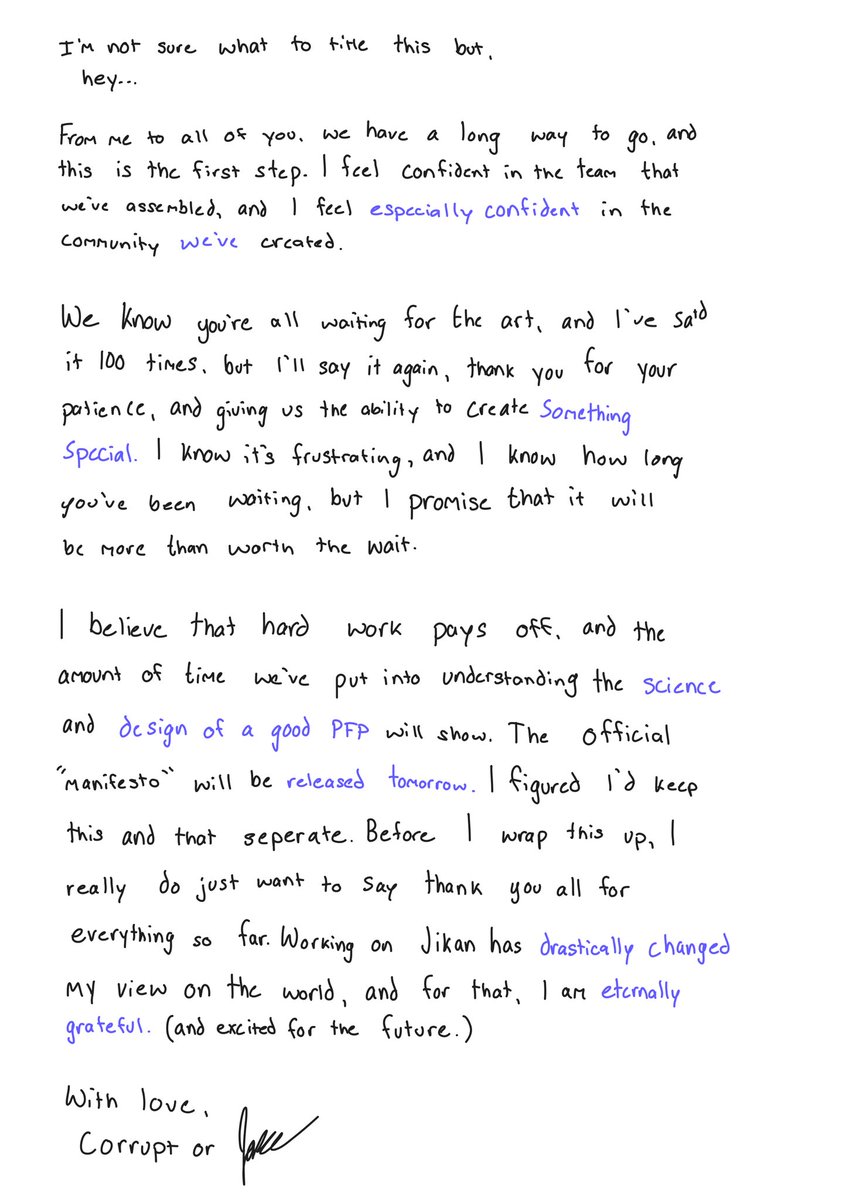 I'm not sure what to title this but,
hey...
From me to all of you, we have a long way to go, and
this is the first step. I feel confident in the team that
we've assembled, and I feel especially confident in the
community we've created.
We know you're all waiting for the art, and I've said
it 100 times, but I'll say it again, thank you for your
patience, and giving us the ability to create something
special. I know it's frustrating, and I know how long
you've been waiting, but I promise that it will
be more than worth the wait.
I believe that hard work pays off, and the
amount of time we've put into understanding the science
and design of a good PFP will show. The official
"manifesto" will be released tomorrow. I figured I'd keep
this and that seperate. Before I wrap this up, I
really do just want to say thank you all for
everything so far. Working on Jikan has drastically changed
my view on the world, and for that, I am eternally
grateful. (and excited for the future.)
With love,
Corrupt or Jake